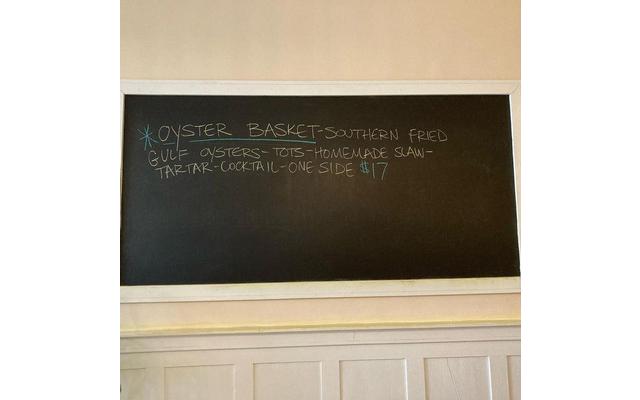 *OYSTER BASKET-SOUTHERN FRIED
GULF OYSTERS-TOTS-HOMEMADE SLAW-
TARTAR-COCKTAIL-ONE SIDE $17